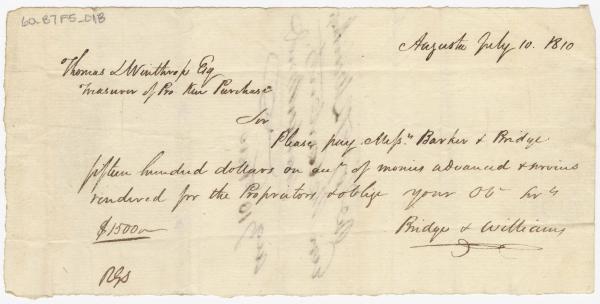 60.87F5_018
Augusta July 10. 1810
Thomas L Winthrop Esq
Treasurer of Pro. Ken Purchase
Sir
Please pay Messrs Barker & Bridge
fifteen hundred dollars on acct of monies advanced & services
rendered for the Proprietors & oblige your Obt Srvts
$1500
Bridge & Williams